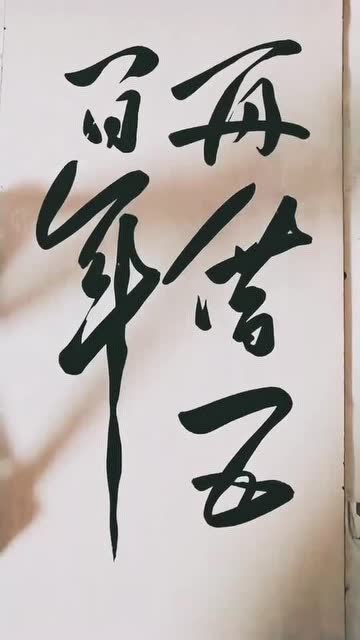 再借五
百年